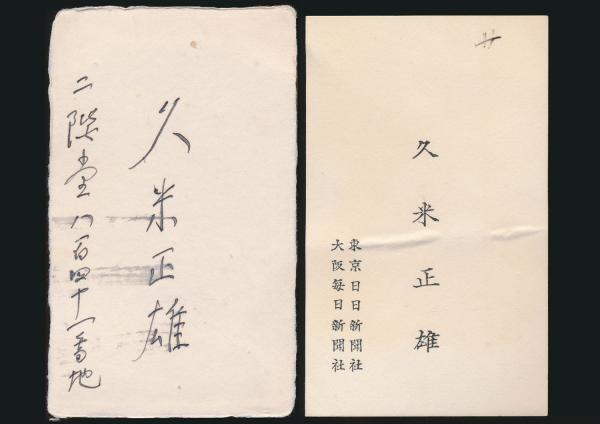 久米正雄
二階堂八百四十一番地
久米正雄
東京日日新聞社
大阪每日新聞社